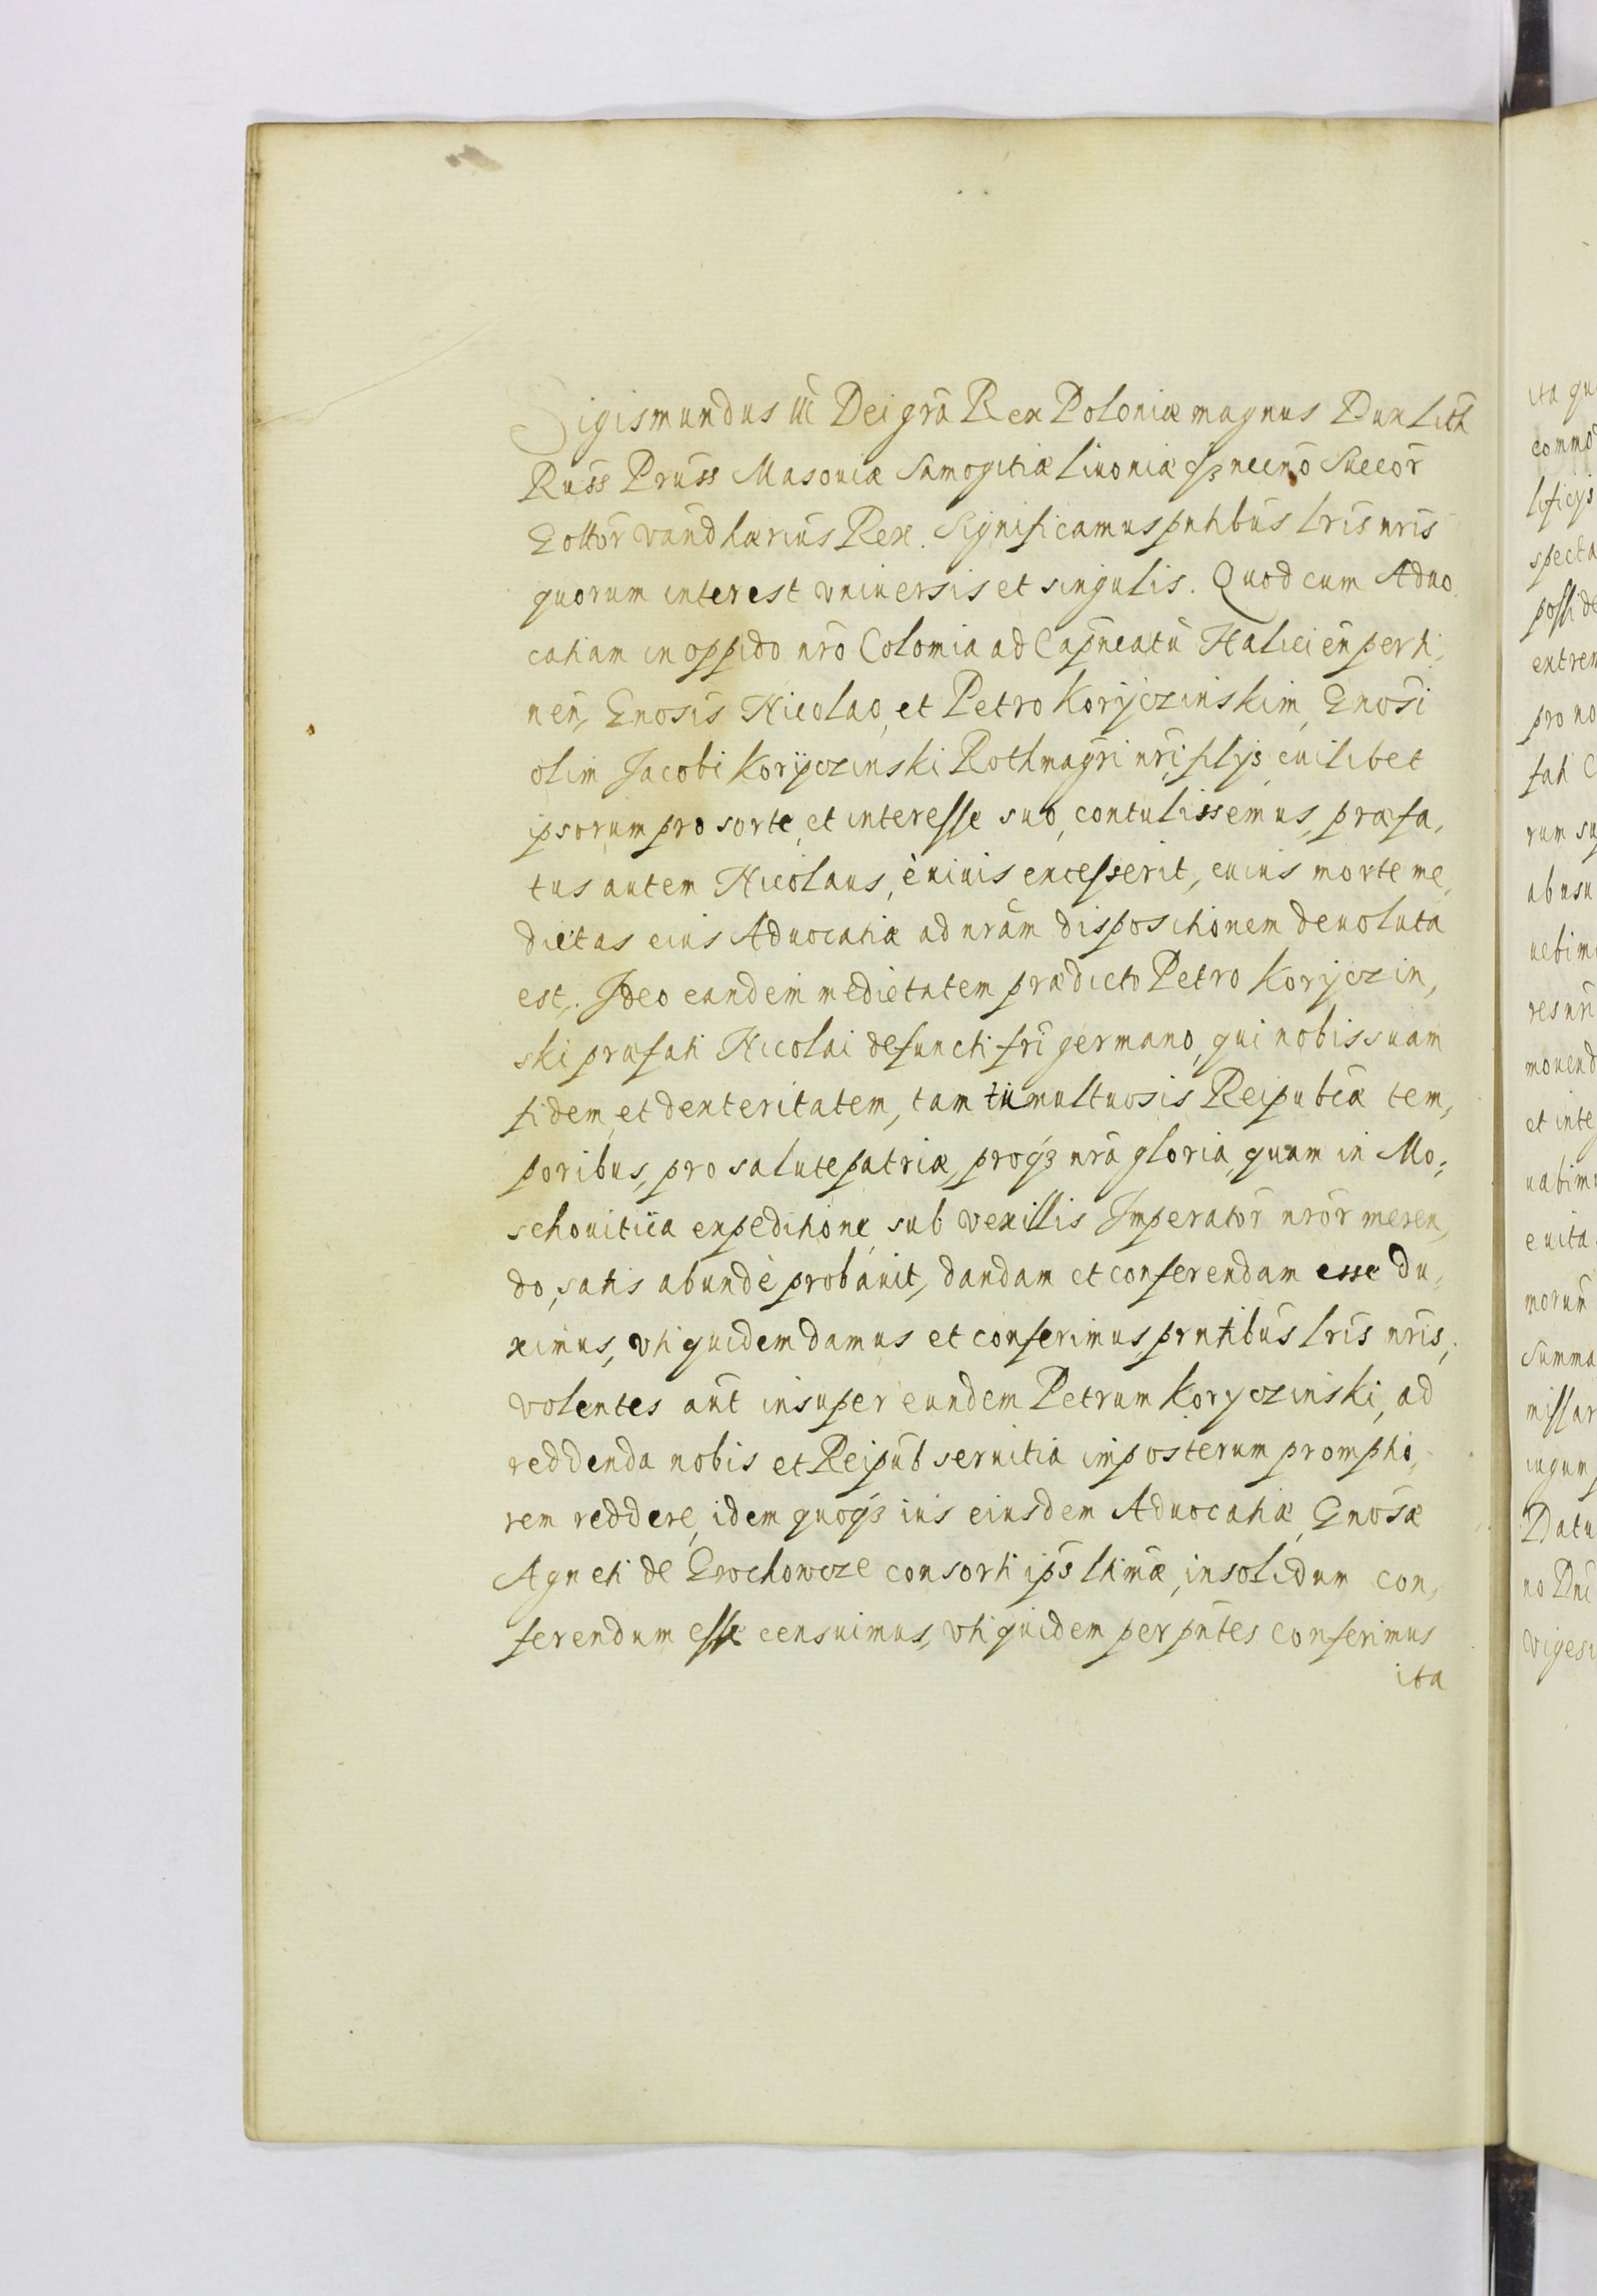 Sigismundus III Dei grã Rex Poloniæ magnus Dux Lith
Russ Pruss Masoviæ Samogitiæ Livoniæ qȝ necnõ Suecor̃
Gottor̃ Vand hæriũs Rex. Significamus pñtibus lris nris
quorum interest vniversis et singulis. Quod cum Advo,
catiam in oppido nrõ Colomia ad Capñeatũ Halicien̄ perti,
nen̄, Gnosis Nicolao, et Petro Koryczinskim, Gnosi
olim Jacobi Koryczinski Rothmagri nri, filys, cuilibet
ipsorum pro sorte, et interesse suo, contulissemus, præfa,
tus autem Nicolaus, è vivis excesserit, cuius morte me,
dietas eius Advocatiæ ad nrãm dispositionem devoluta
est. Ideo eandem medietatem prædicto Petro Koryczin,
ski præfati Nicolai defuncti fri germano, qui nobis suam
fidem, et dexteritatem, tam tumultuosis Reipubcæ tem,
poribus, pro salute patriæ, proqȝ nrã gloria, quam in Mo,
schovitica expeditione, sub vexillis Imperator̃ nror̃ meren,
do, satis abundè probavit, dandam et conferendam esse du,
ximus, vti quidem damus et conferimus prñtibus lris nris,
volentes aũt insuper eundem Petrum Koryczinski, ad
reddenda nobis et Reipub servitia imposterum promptio,
rem reddere, idem quoqȝ ius eiusdem Advocatiæ, Gnosæ
Agneti de Grochowcze consorti ips ltimæ, insolidum con,
ferendum esse censuimus, vti quidem per pñtes conferimus
ita